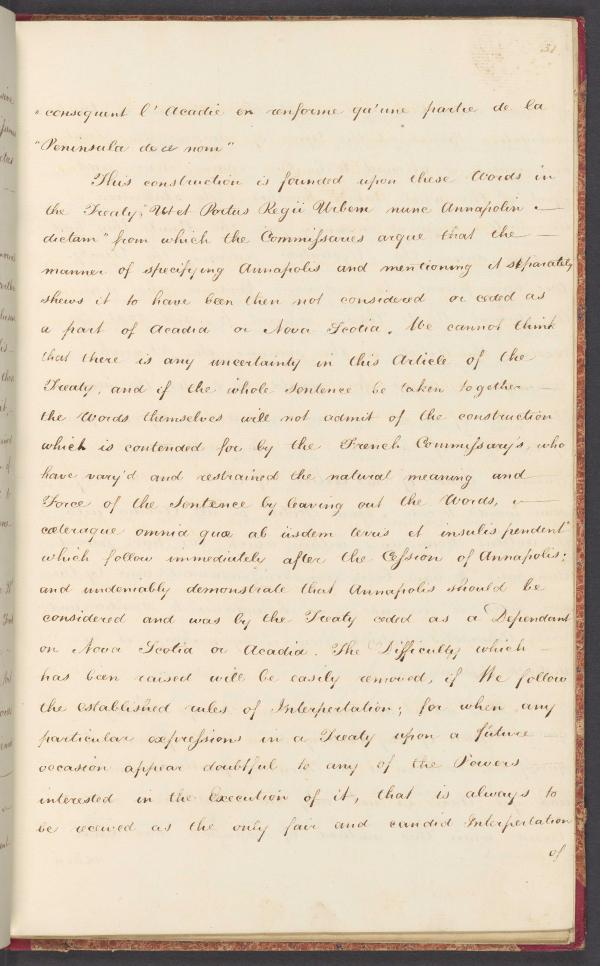 31
"consequent l' Acadie en renferme qu'une partie de la
"Peninsula de ce nom"
This construction is founded upon these Words in
the Treaty, "Ut et Portus Regii Urbem nunc Annapolin —
dictam" from which the Commissaries argue that the —
manner of specifying Annapolis and mentioning it separately
shews it to have been then not considered or ceded as
a part of Acadia or Nova Scotia. We cannot think
that there is any uncertainty in this Article of the
Treaty, and if the whole Sentence be taken together —
the Words themselves will not admit of the construction
which is contended for by the French Commissary's, who
have vary'd and restrained the natural meaning and —
Force of the Sentence by leaving out the Words, —
cæteraque omnia quæ ab iisdem terris et insulis pendent"
which follow immediately after the Cession of Annapolis:
and undeniably demonstrate that Annapolis should be
considered and was by the Treaty ceded as a Dependant
on Nova Scotia or Acadia. The Difficulty which —
has been raised will be easily removed, if We follow
the established rules of Interpertation; for when any
particular expressions in a Treaty upon a future —
occasion appear doubtful to any of the Powers —
interested in the Execution of it, that is always to
be received as the only fair and candid Interpertation
of